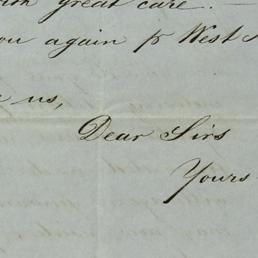 with great care. —
you again pr West
us,
Dear Sirs
Yours